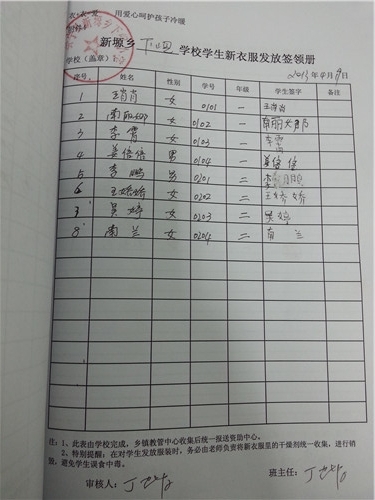 衣衣爱 用爱心呵护孩子冷暖
新塬乡 学校学生新衣服发放签领册
学校（盖章） 2013年4月9日
序号 姓名 性别 学号 年级 学生签字 备注
1 王肖肖 女 0101 一 王肖肖
2 南丽娜 女 0102 一 南丽娜
3 李霄 女 0103 一 李霄
4 姜倍倍 男 0104 一 姜倍倍
5 李鹏 男 0201 二 李鹏
6 王娇娇 女 0202 二 王娇娇
7 吴婷 女 0203 二 吴婷
8 南兰 女 0204 二 南兰
注：1、此表由学校完成，乡镇教管中心收集后统一报送资助中心。
2、特别提醒：在对学生发放服装时，务必由老师负责将新衣服里的干燥剂统一收集，进行销
毁，避免学生误食中毒。
审核人： 班主任：